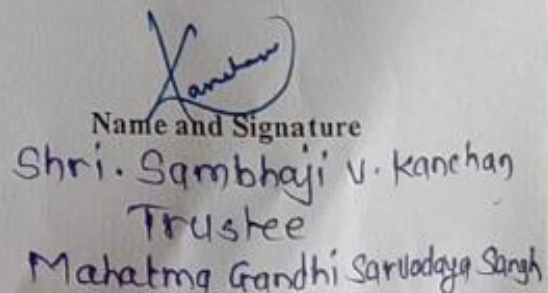 Kanchan
Name and Signature
Shri. Sambhaji V. Kanchan
Trustee
Mahatma Gandhi Sarvodaya Sangh